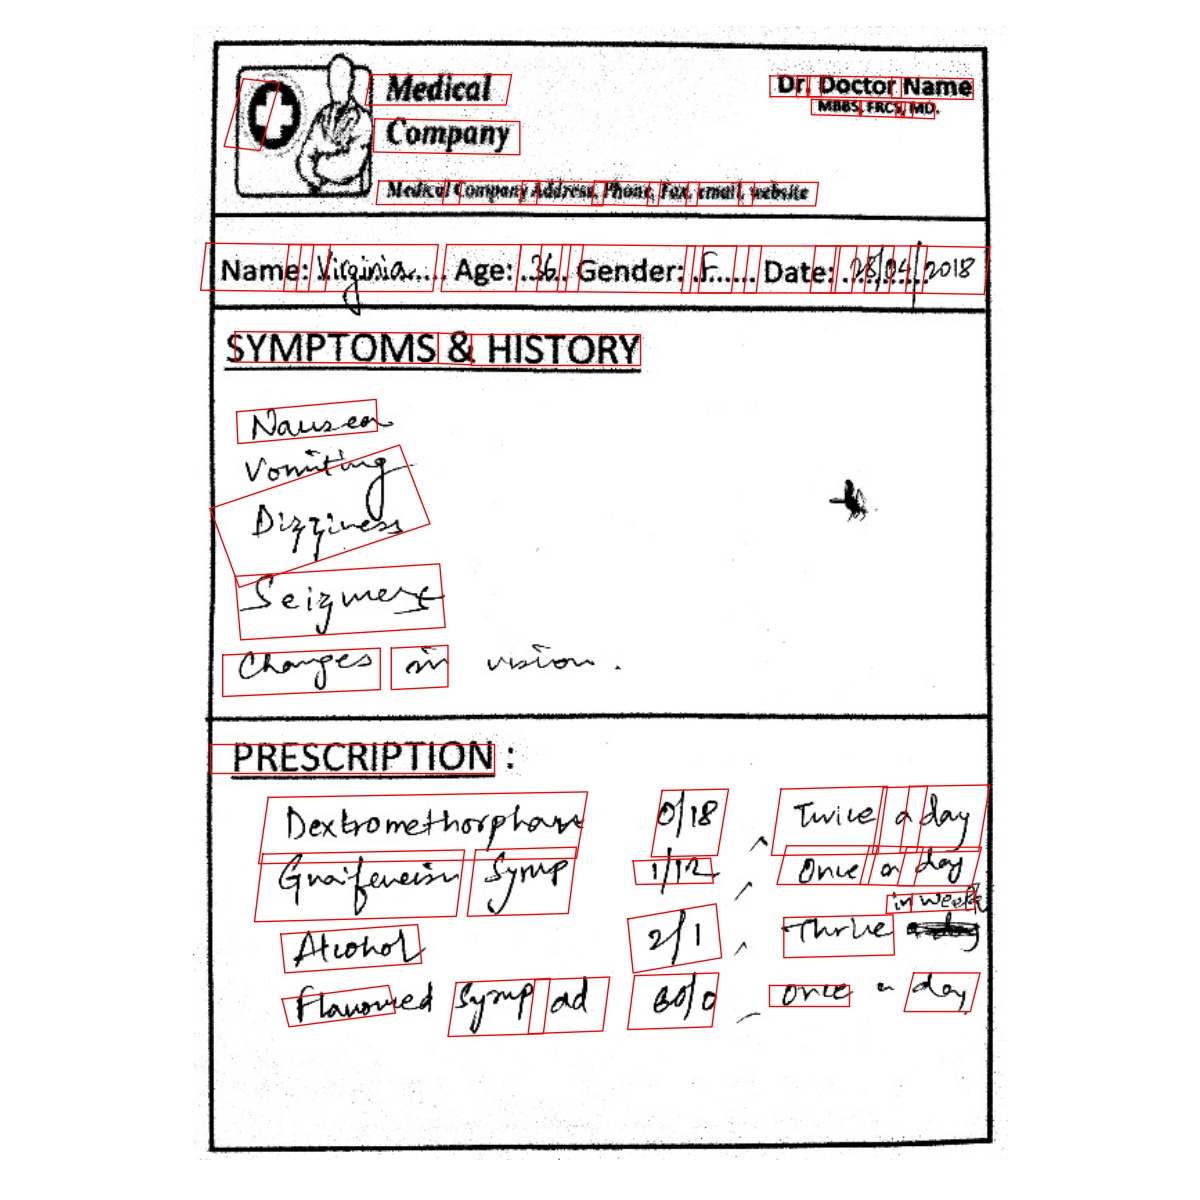 Medical
Company
Dr. Doctor Name
MBBS, FRCS, MD.
Medical Company Address, Phone, Fax, email, website
Name: Virginia.... Age: .36.. Gender: .F...... Date: 28/04/2018
SYMPTOMS & HISTORY
Nausea
Vomiting
Dizziness
Changes in vision.
PRESCRIPTION :
Dextromethorphan 0/18 Twice a day
Guaifenesin Syrup 1/12 Once a day
Alcohol 2/1 Thrice in week
Flavoured Syrup ad 60/0 once a day